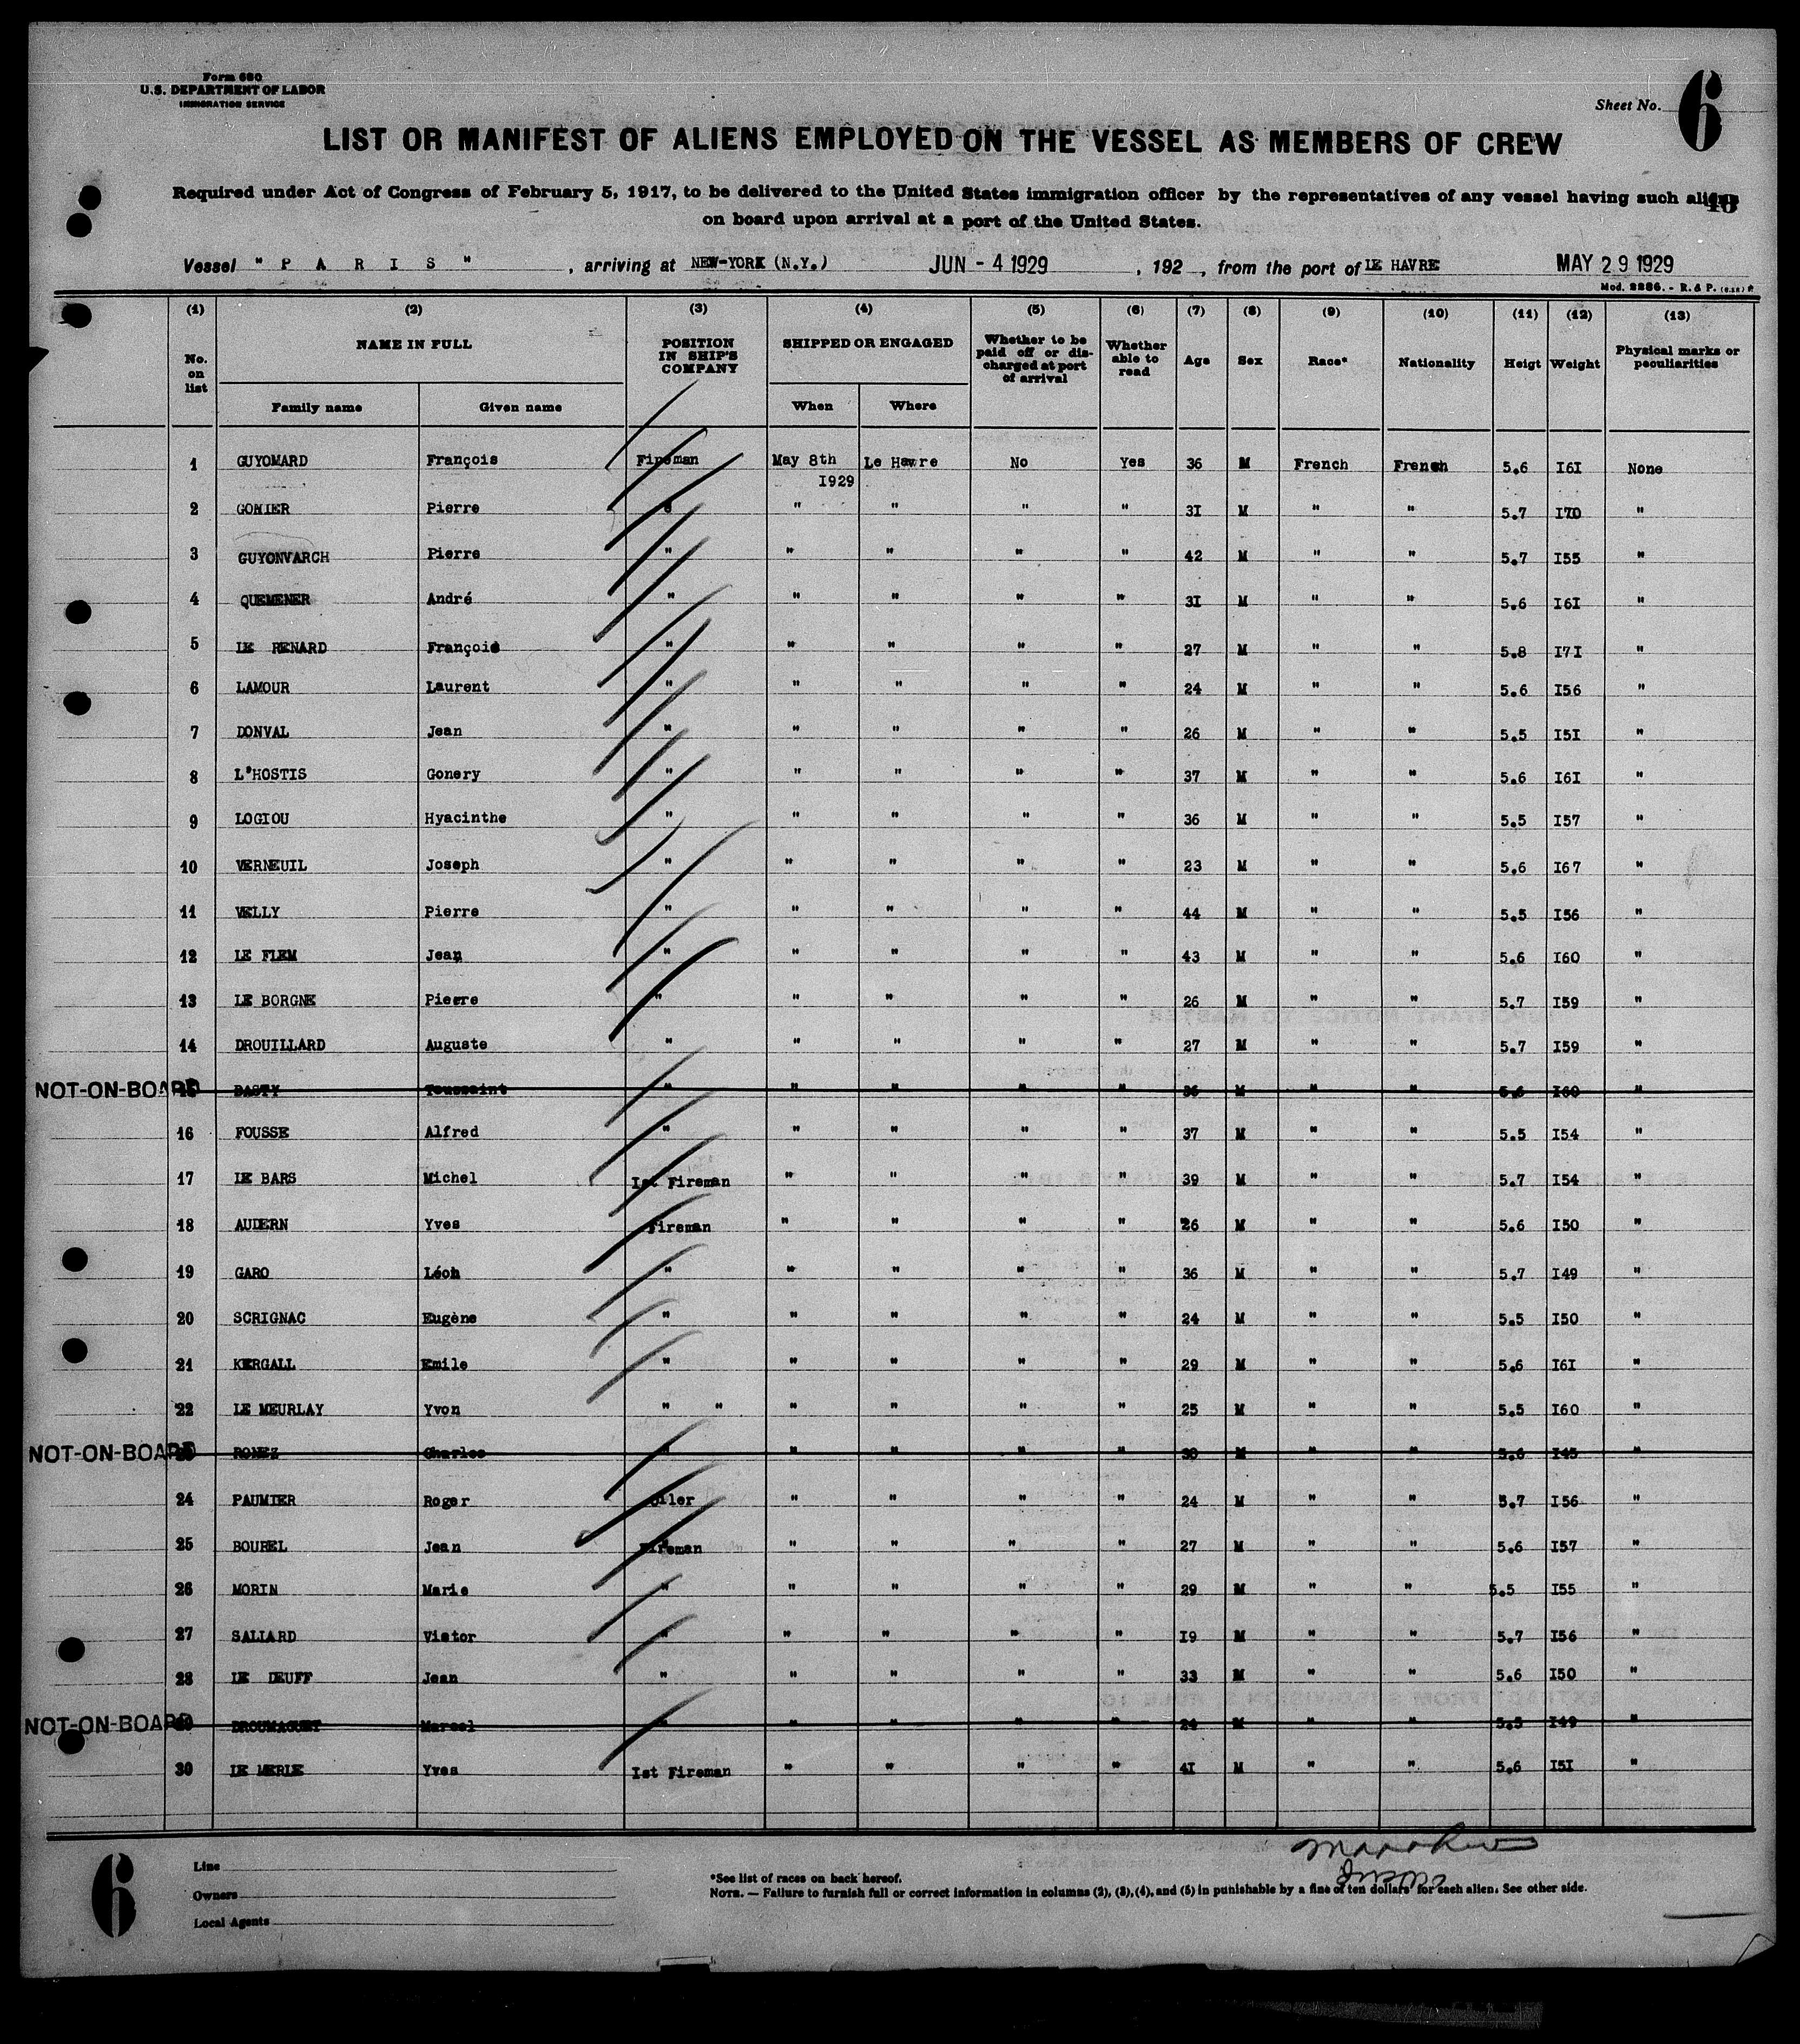 Form 680
U.S. DEPARTMENT OF LABOR
IMMIGRATION SERVICE
Sheet No. 6
LIST OR MANIFEST OF ALIENS EMPLOYED ON THE VESSEL AS MEMBERS OF CREW
Required under Act of Congress of February 5, 1917, to be delivered to the United States immigration officer by the representatives of any vessel having such aliens
on board upon arrival at a port of the United States.
Vessel " P A R I S " , arriving at NEW-YORK (N.Y.) JUN - 4 1929 , 192 , from the port of LE HAVRE MAY 29 1929
Mod. 2286. - R. & P.
(1) (2) (3) (4) (5) (6) (7) (8) (9) (10) (11) (12) (13)
No. on list NAME IN FULL Family name Given name POSITION IN SHIP'S COMPANY SHIPPED OR ENGAGED When Where Whether to be paid off or discharged at port of arrival Whether able to read Age Sex Race* Nationality Heigt Weight Physical marks or peculiarities
1 GUYOMARD François Fireman May 8th 1929 Le Havre No Yes 36 M French French 5.6 161 None
2 GONIER Pierre " " " " " 31 M " " 5.7 170 "
3 GUYONVARCH Pierre " " " " " 42 M " " 5.7 155 "
4 QUEMENER André " " " " " 31 M " " 5.6 161 "
5 LE RENARD François " " " " " 27 M " " 5.8 171 "
6 LAMOUR Laurent " " " " " 24 M " " 5.6 156 "
7 DONVAL Jean " " " " " 26 M " " 5.5 151 "
8 L'HOSTIS Gonery " " " " " 37 M " " 5.6 161 "
9 LOGIOU Hyacinthe " " " " " 36 M " " 5.5 157 "
10 VERNEUIL Joseph " " " " " 23 M " " 5.6 167 "
11 VELLY Pierre " " " " " 44 M " " 5.5 156 "
12 LE FLEM Jean " " " " " 43 M " " 5.6 160 "
13 LE BORGNE Pierre " " " " " 26 M " " 5.7 159 "
14 DROUILLARD Auguste " " " " " 27 M " " 5.7 159 "
NOT-ON-BOARD 15 BASTY Toussaint " " " " " M " " 5.6 160 "
16 FOUSSE Alfred " " " " " 37 M " " 5.5 154 "
17 LE BARS Michel 1st Fireman " " " " 39 M " " 5.7 154 "
18 AUDERN Yves Fireman " " " " 26 M " " 5.6 150 "
19 GARO Léon " " " " " 36 M " " 5.7 149 "
20 SCRIGNAC Eugène " " " " " 24 M " " 5.5 150 "
21 KERGALL Emile " " " " " 29 M " " 5.6 161 "
22 LE MEURLAY Yvon " " " " " " 25 M " " 5.5 160 "
NOT-ON-BOARD 23 Charles " " " " " 30 M " " 5.6 145 "
24 PAUMIER Roger Oiler " " " " 24 M " " 5.7 156 "
25 BOUREL Jean Fireman " " " " 27 M " " 5.6 157 "
26 MORIN Marie " " " " " 29 M " " 5.5 155 "
27 SALIARD Viator " " " " " 19 M " " 5.7 156 "
28 LE DEUFF Jean " " " " " 33 M " " 5.6 150 "
NOT-ON-BOARD 29 DROUMAGUET Marcel " " " " " 24 M " " 5.5 149 "
30 LE MERLE Yves 1st Fireman " " " " 41 M " " 5.6 151 "
6
Line
Owners
Local Agents
*See list of races on back hereof.
NOTE. — Failure to furnish full or correct information in columns (2), (3), (4), and (5) in punishable by a fine of ten dollars for each alien. See other side.